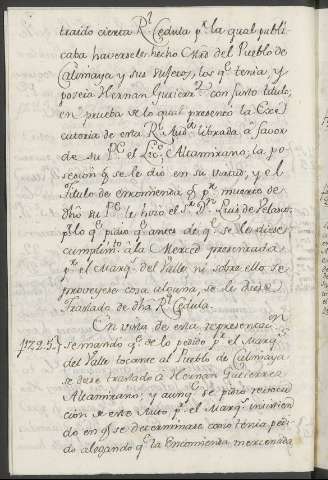 traido cierta Rl Cedula pr la qual publi
caba haversele hecho Mrd del Pueblo de
Calimaya y sus sujetos, los qe tenia, y
poseia Hernan Gutierrz con justo titulo;
en prueba de lo qual presentó la Exe
cutoria de esta Rl Auda librada á favor
de su Pe el Lizdo Altamirano, la po
sesion qe se le dio en su virtud, y el
Titulo de encomienda qe pr muerte de
dho su Pe le hizo el Sr Dn Luis de Velasco,
pr lo qe pidio qe antes de qe se le diese
cumplimto á la Merced presentada
pr el Marqs del Valle, ni sobre ello se
proveyese cosa alguna, se le diese
Traslado de dha Rl Cedula.
En vista de esta representacion
1722.5. se mandó qe de lo pedido pr el Marqs
del Valle tocante al Pueblo de Calimaya
se diese traslado á Hernan Gutierrez
Altamirano; y aunqe se pidio revoca
cion de este Auto pr el Marqs insistien
do en qe se determinase como tenia pedi
do alegando qe la Encomienda mencionada